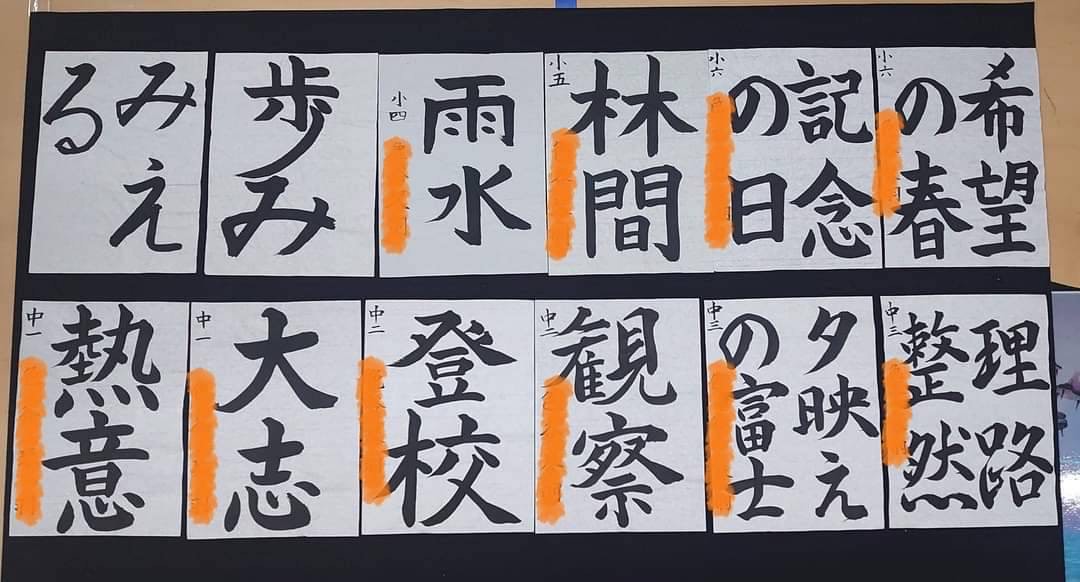 みえ
る
歩み
雨水
小四
林間
小五
記念
の日
小六
希望
の春
小六
熱意
中一
大志
中一
登校
中二
観察
中二
夕映え
の富士
中三
理路
整然
中三